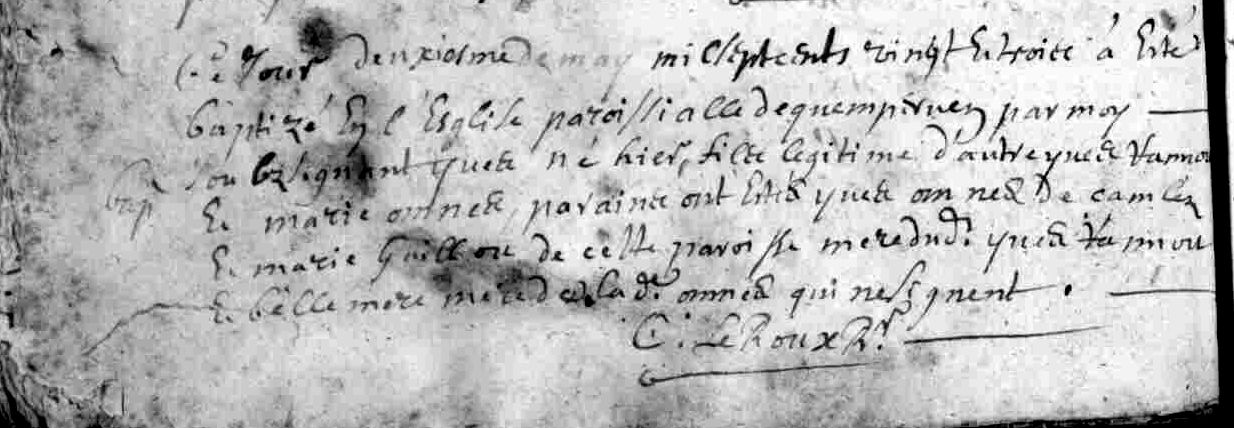 Ce Jour deuxiesme de may mil sept cents vingt Et trois à Esté
baptizé En l'Esglise paroissialle de quemperven par moy
bap. soubzsignant yves né hier, fils legitime d'autre yves Vannou
Et marie omnes, parains ont Estés yves omnes De camlez
Et marie Guillou de cette paroisse mere dudt. yves Vannou
Et belle mere de ladt. omnes qui ne signent.
C: Le Roux Rr.